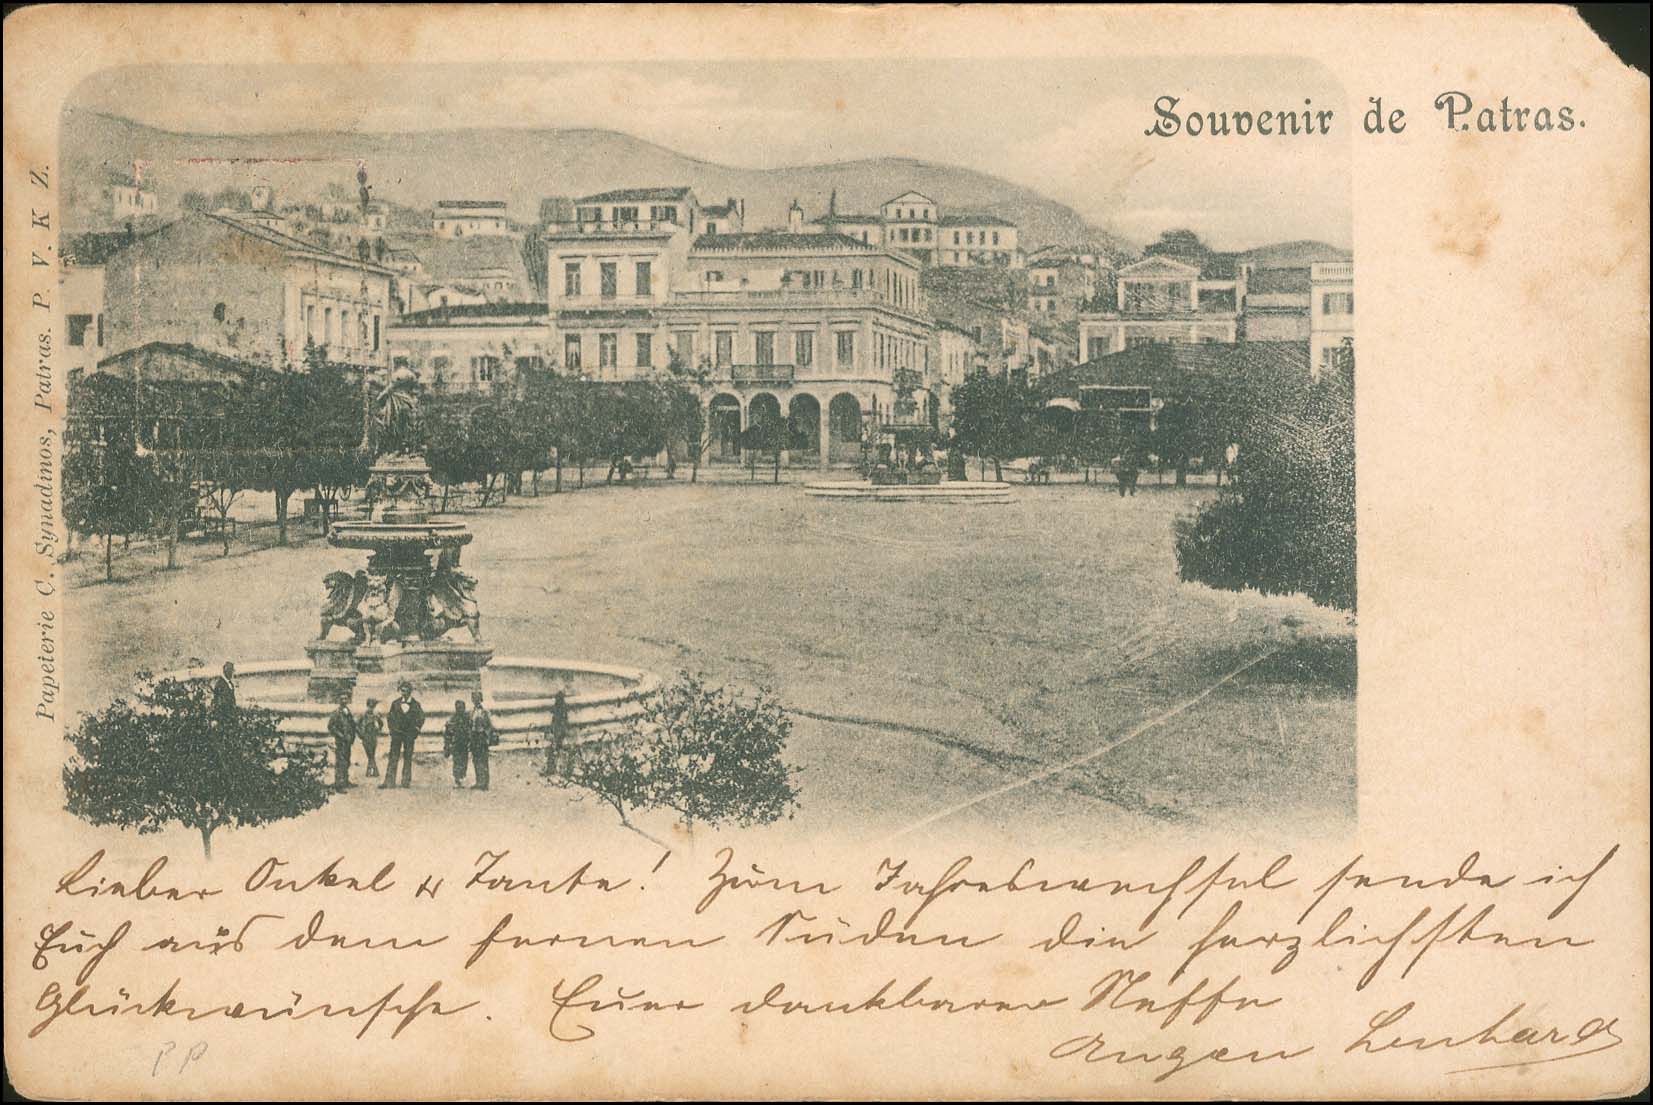 Souvenir de Patras.
Papeterie C. Synadinos, Patras. P. V. K Z.
Lieber Onkel & Tante! Zum Jahreswechsel sende ich
Euch aus dem fernen Süden die herzlichsten
Glückwünsche. Euer dankbarer Neffe
Eugen Lenhard
PP